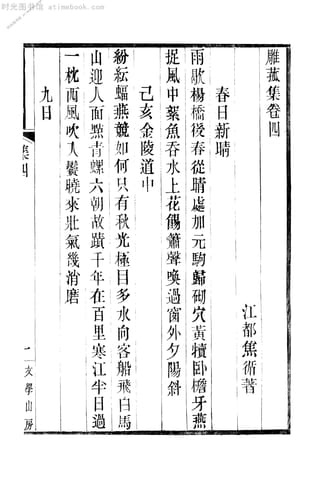 时光图书馆 atimebook.com
雕菰集卷四
江都焦循著
春日新晴
雨歇楊橋後春從晴處加元駒歸砌穴黃犢卧檐牙燕
捉風中絮魚吞水上花餳簫聲喚過窗外夕陽斜
己亥金陵道中
紛紜蝠燕競如何只有秋光極目多水向客船飛白馬
山迎人面點青螺六朝故蹟千年在百里寒江半日過
一枕西風吹人鬢曉來壯氣幾消磨
九日
集四
一
文學山房